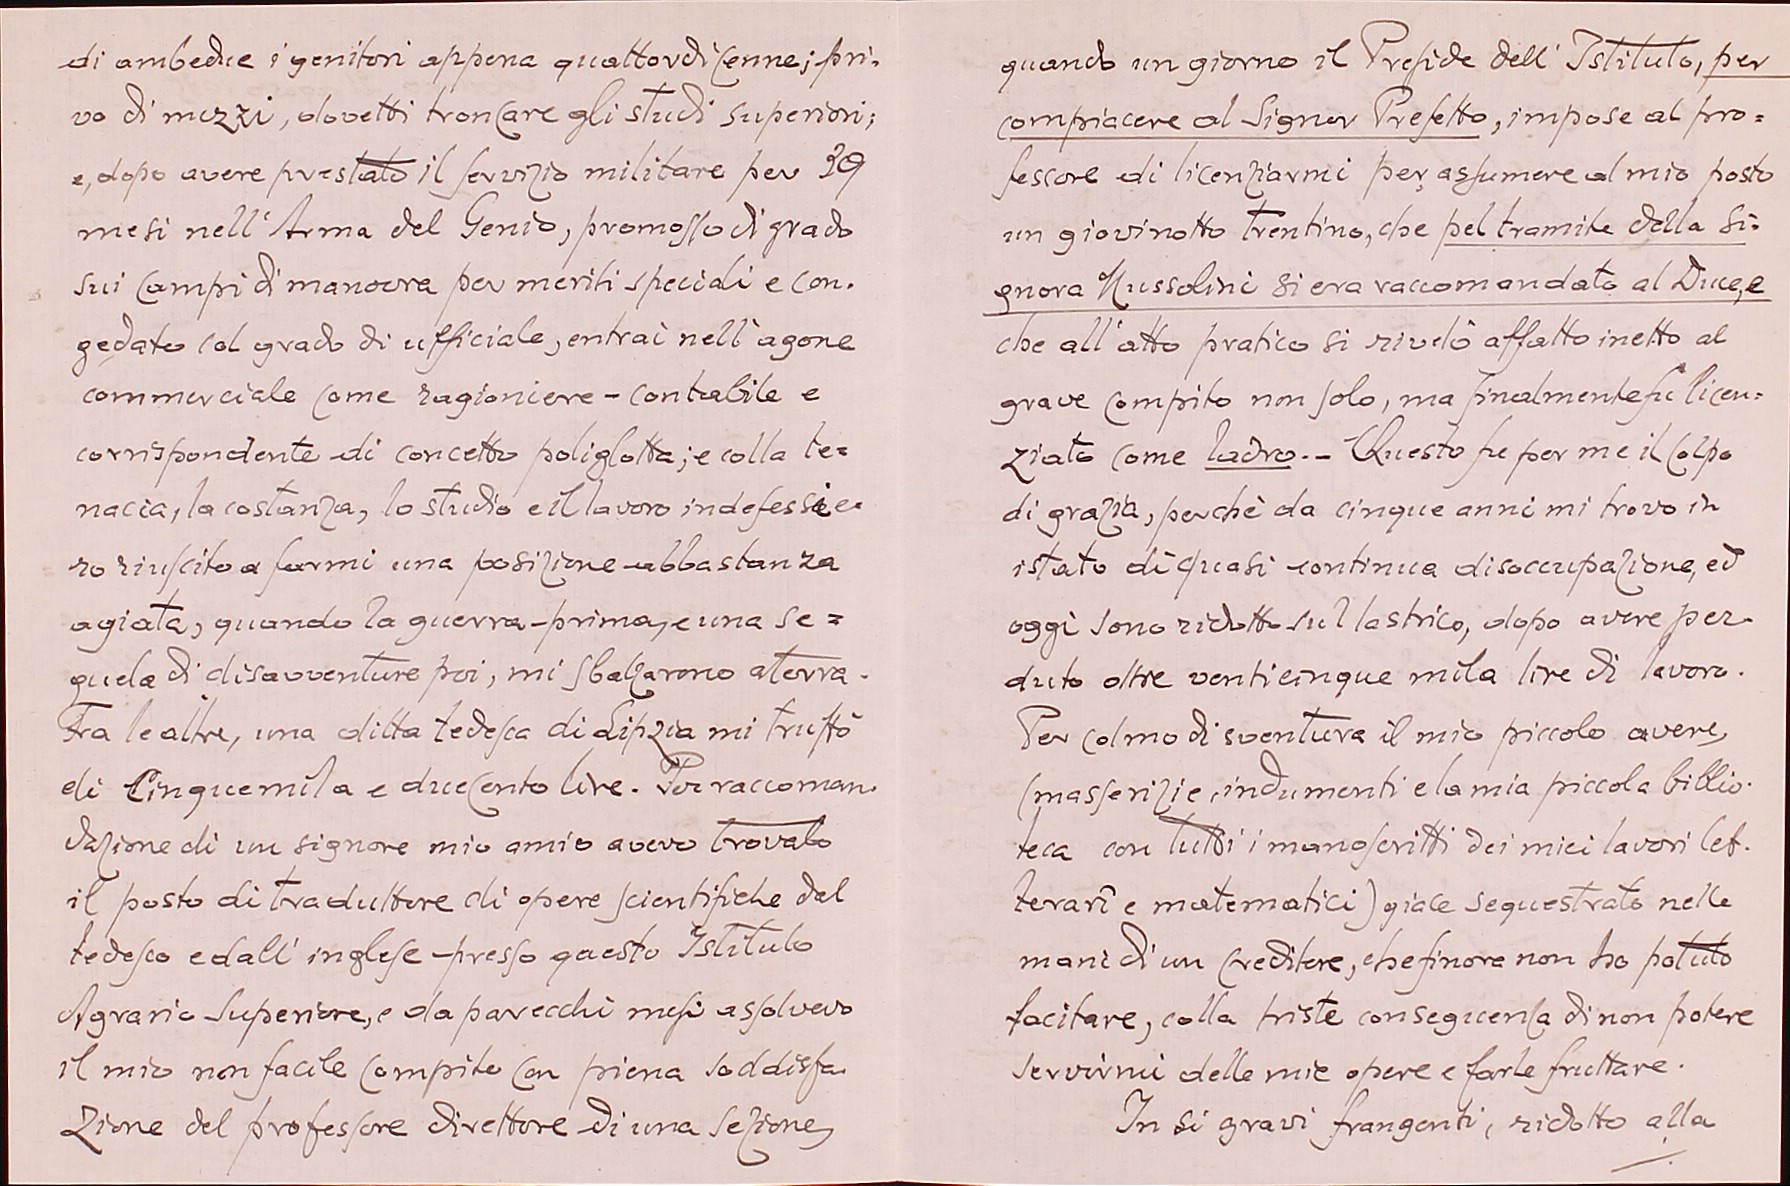 di ambedue i genitori appena quattordicenne; pri-
vo di mezzi, dovetti troncare gli studi superiori;
e, dopo avere prestato il servizio militare per 39
mesi nell'Arma del Genio, promosso di grado
sui campi di manovra per meriti speciali e con-
gedato col grado di ufficiale, entrai nell'agone
commerciale come ragioniere-contabile e
corrispondente di concetto poliglotta; e colla te=
nacia, la costanza, lo studio e il lavoro indefessi e-
ro riuscito a farmi una posizione abbastanza
agiata, quando la guerra prima, e una se=
guela di disavventure poi, mi sbalzarono a terra.
Fra le altre, una ditta tedesca di Lipzia mi truffò
di Cinquemila e duecento lire. Per raccoman-
dazione di un signore mio amio avevo trovato
il posto di traduttore di opere scientifiche dal
tedesco e dall'inglese presso questo Istituto
Agrario Superiore, e da parecchi mesi assolvevo
il mio non facile compito con piena soddisfa-
zione del professore direttore di una sezione,
quando un giorno il Preside dell'Istituto, per
compiacere al Signor Prefetto, impose al pro=
fessore di licenziarmi per assumere al mio posto
un giovinotto trentino, che pel tramite della Si-
gnora Mussolini si era raccomandato al Duce, e
che all'atto pratico si rivelò affatto inetto al
grave compito non solo, ma finalmente fu licen=
ziato come ladro.- Questo fu per me il colpo
di grazia, perchè da cinque anni mi trovo in
istato di quasi continua disoccupazione, ed
oggi sono ridotto sul lastrico, dopo avere per-
duto oltre venticinque mila lire di lavoro.
Per colmo di sventura il mio piccolo avere,
(masserizie, indumenti e la mia piccola biblio-
teca con tutti i manoscritti dei miei lavori let-
terarî e matematici) giace sequestrato nelle
mani di un creditore, che finora non ho potuto
tacitare, colla triste conseguenza di non potere
servirmi delle mie opere e farle fruttare.
In sì gravi frangenti, ridotto alla